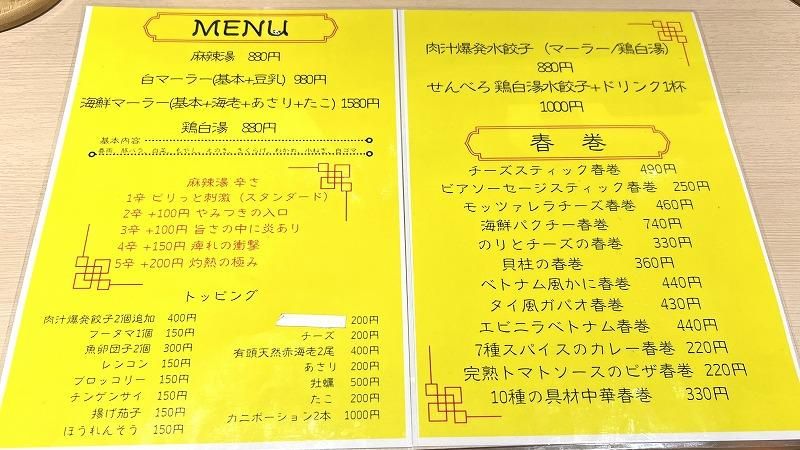 MENU
麻辣湯 880円
白マーラー(基本+豆乳) 980円
海鮮マーラー(基本+海老+あさり+たこ) 1580円
鶏白湯 880円
基本内容
春雨、豚バラ、白菜、もやし、えのき、きくらげ、わかめ、小ねぎ、白ゴマ
麻辣湯 辛さ
1辛 ピリっと刺激(スタンダード)
2辛 +100円 やみつきの入口
3辛 +100円 旨さの中に炎あり
4辛 +150円 痺れの衝撃
5辛 +200円 灼熱の極み
トッピング
肉汁爆発餃子2個追加 400円
フーヌマ1個 150円
魚卵団子2個 300円
レンコン 150円
ブロッコリー 150円
チンゲンサイ 150円
揚げ茄子 150円
ほうれんそう 150円
200円
チーズ 200円
有頭天然赤海老2尾 400円
あさり 200円
牡蠣 500円
たこ 200円
カニポーション2本 1000円
肉汁爆発水餃子 (マーラー/鶏白湯)
880円
せんべろ 鶏白湯水餃子+ドリンク1杯
1000円
春巻
チーズスティック春巻 490円
ビアソーセージスティック春巻 250円
モッツァレラチーズ春巻 460円
海鮮パクチー春巻 740円
のりとチーズの春巻 330円
貝柱の春巻 360円
ベトナム風かに春巻 440円
タイ風ガパオ春巻 430円
エビニラベトナム春巻 440円
7種スパイスのカレー春巻 220円
完熟トマトソースのピザ春巻 220円
10種の具材中華春巻 330円